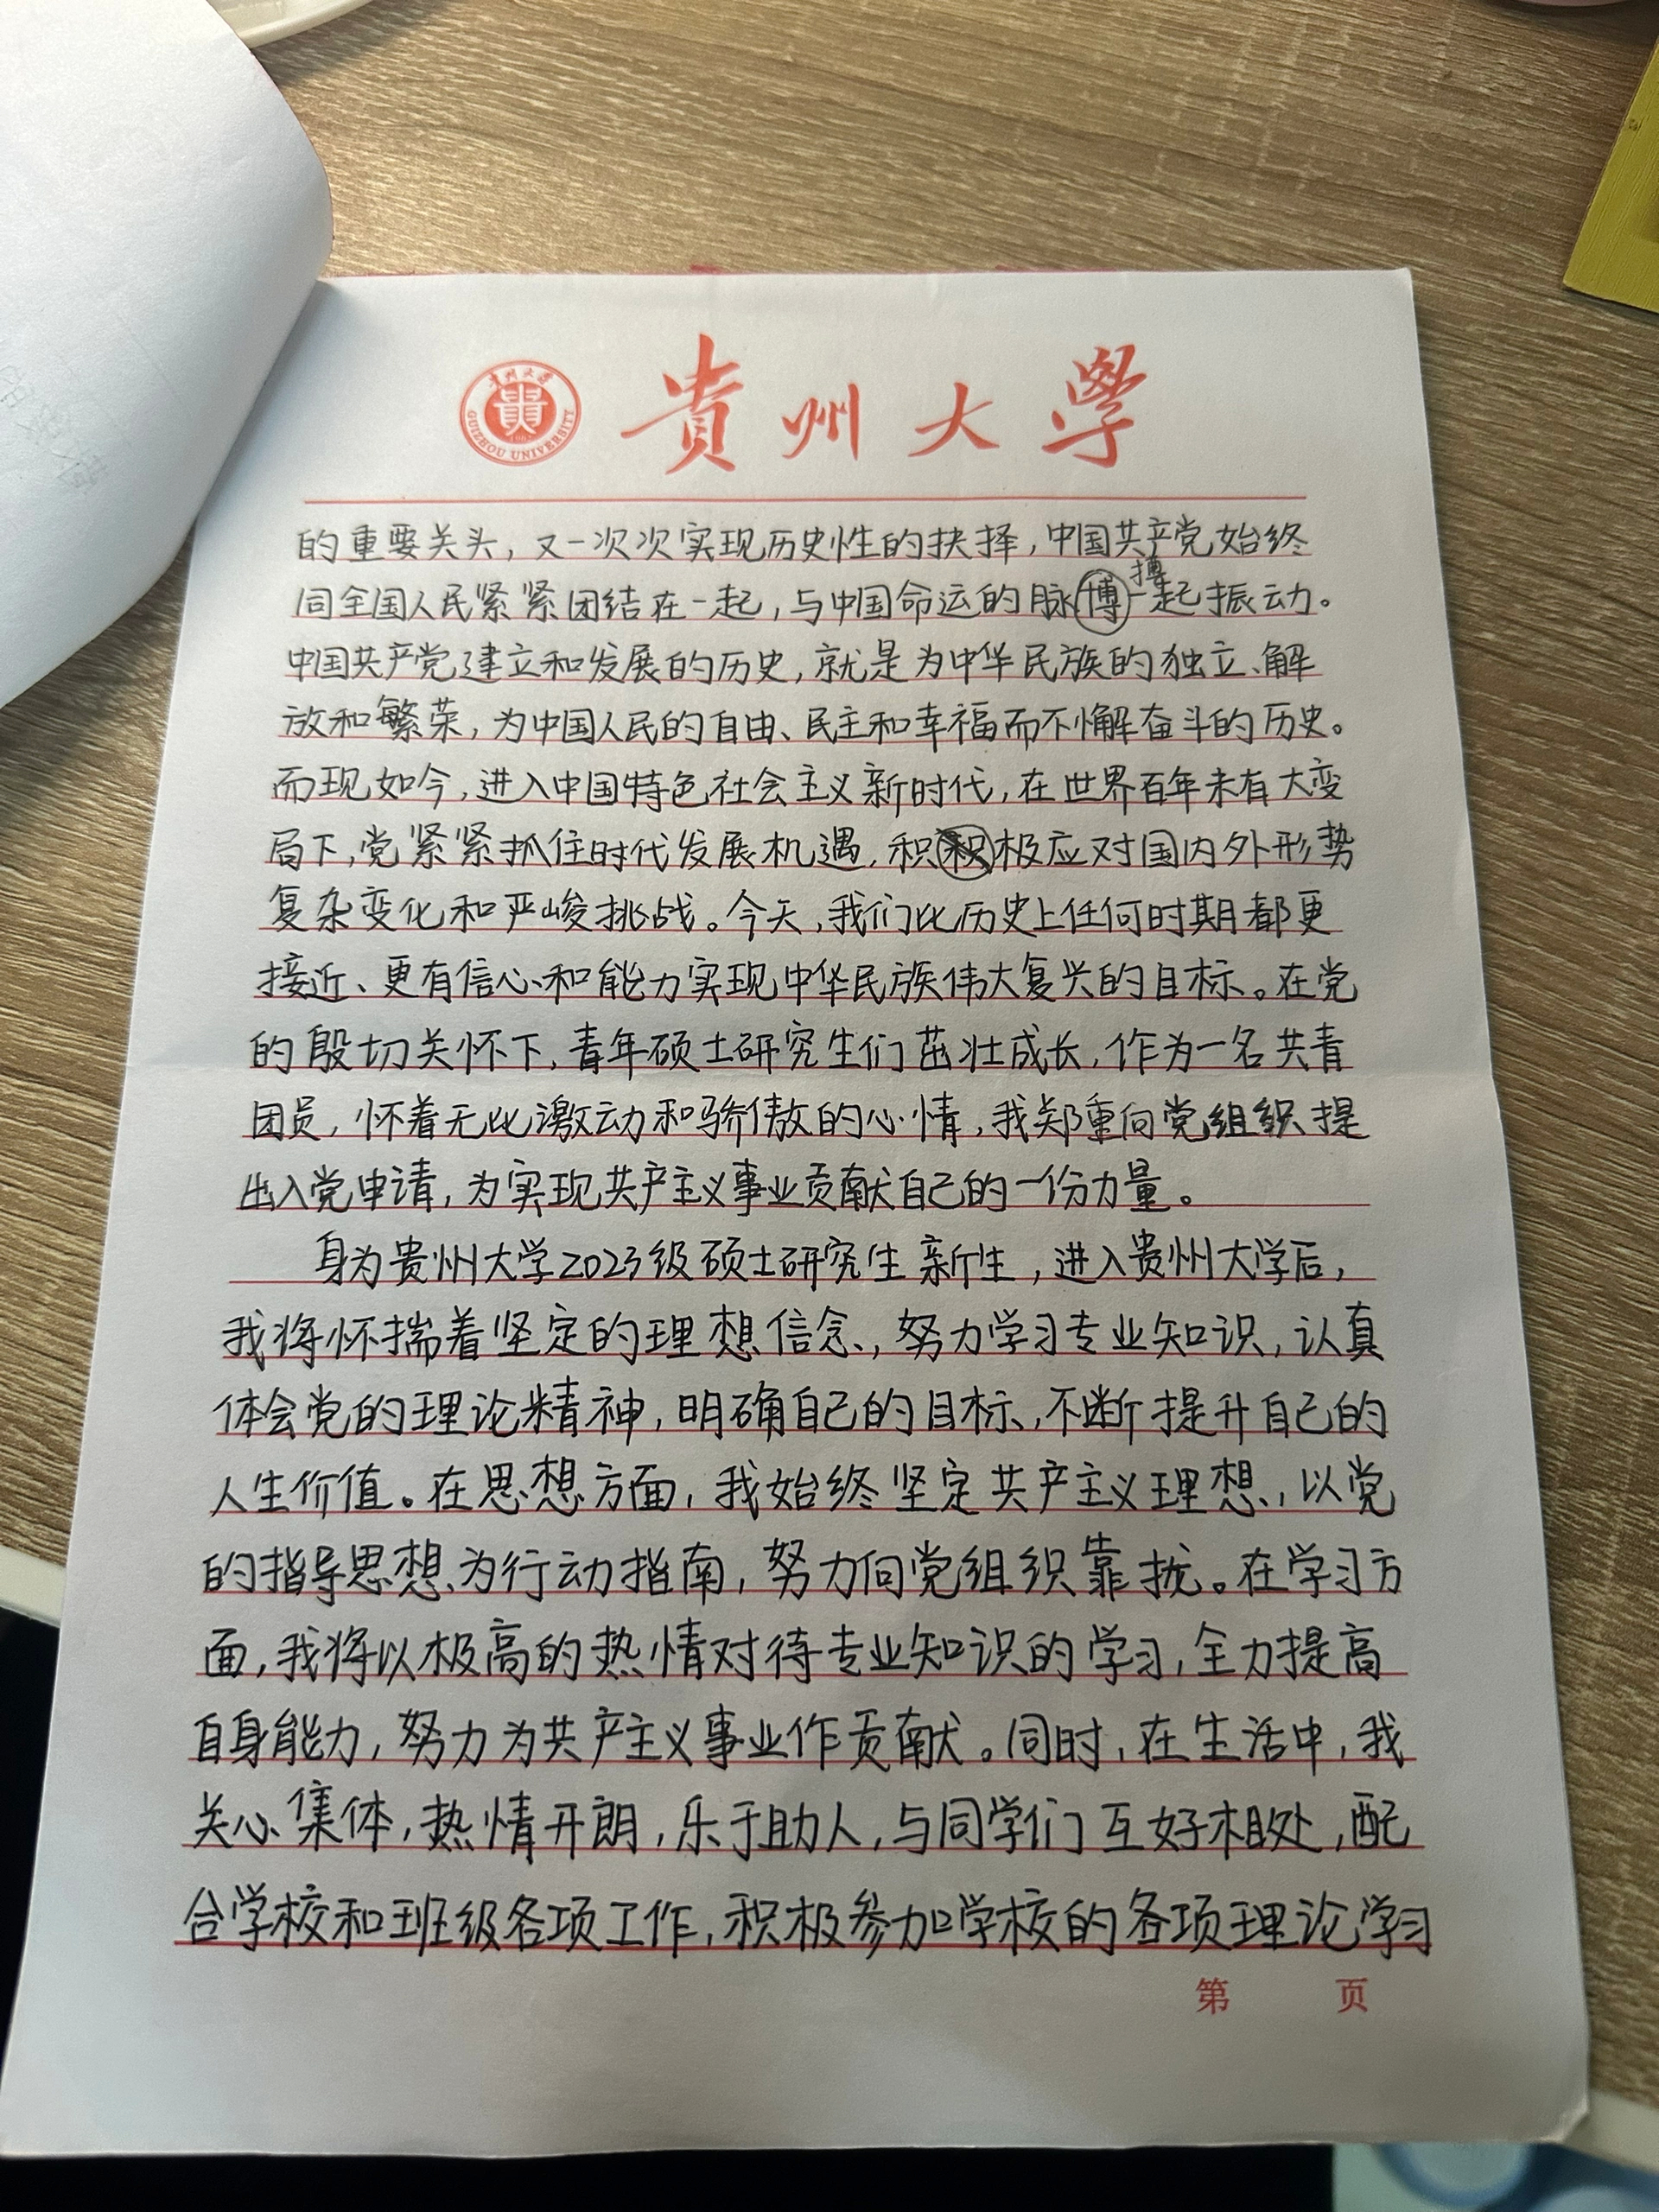 貴州大學
GUIZHOU UNIVERSITY
的重要关头，又一次次实现历史性的抉择，中国共产党始终
搏
同全国人民紧紧团结在一起，与中国命运的脉博一起振动。
中国共产党建立和发展的历史，就是为中华民族的独立、解
放和繁荣，为中国人民的自由、民主和幸福而不懈奋斗的历史。
而现如今，进入中国特色社会主义新时代，在世界百年未有大变
局下，党紧紧抓住时代发展机遇，积积极应对国内外形势
复杂变化和严峻挑战。今天，我们比历史上任何时期都更
接近、更有信心和能力实现中华民族伟大复兴的目标。在党
的殷切关怀下，青年硕士研究生们茁壮成长，作为一名共青
团员，怀着无比激动和骄傲的心情，我郑重向党组织提
出入党申请，为实现共产主义事业贡献自己的一份力量。
身为贵州大学2023级硕士研究生新生，进入贵州大学后，
我将怀揣着坚定的理想信念，努力学习专业知识，认真
体会党的理论精神，明确自己的目标，不断提升自己的
人生价值。在思想方面，我始终坚定共产主义理想，以党
的指导思想为行动指南，努力向党组织靠拢。在学习方
面，我将以极高的热情对待专业知识的学习，全力提高
自身能力，努力为共产主义事业作贡献。同时，在生活中，我
关心集体，热情开朗，乐于助人，与同学们互好相处，配
合学校和班级各项工作，积极参加学校的各项理论学习
第 页